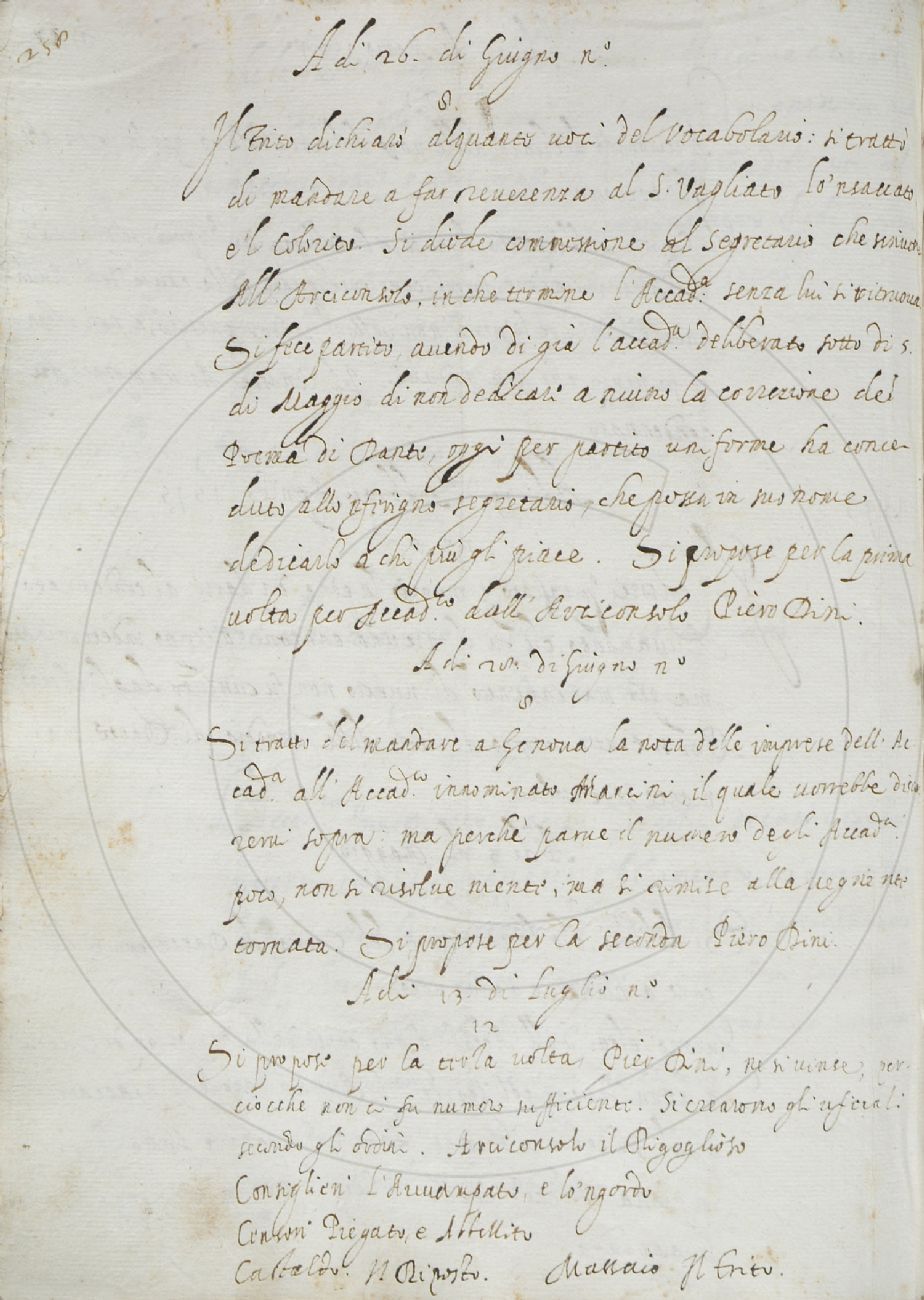 258
Adi 26. di Giugno n.°
8.
Il Trito dichiarò alquante voci del Vocabolario: si trattò
di mandare a far reverenza al S. Vagliato lo'nsaccato
e'l Colorito. Si diede commessione al Segretario che scriva
All'Arciconsolo, in che termine l'Accad.a senza lui si ritruova
Si fece partito, avendo di già l'accad.a deliberato sotto dì 5.
di Maggio di non dedicare a niuno la correzione del
Poema di Dante, oggi per partito uniforme ha conce-
duto allo'nferigno segretario, che possa in suo nome
dedicarlo a chi più gli piace. Si propose per la prima
volta per Accad.co dall'Arciconsolo Piero Dini.
Adi di Giugno n.°
8
Si trattò del mandare a Genova la nota delle imprese dell'Ac-
cad.a all'Accad.co innominato Marcini, il quale vorrebbe
sopra: ma perchè parve il numero degli Accad.ci
poco, non si risolve niente, ma si rimise alla vegniente
tornata. Si propose per la seconda Piero Dini.
Adi 13. di Luglio n.°
12
Si propose per la terza volta Pier Dini, ne si vinse, per-
ciocche non ci fu numero sufficiente. Si crearono gli uficiali
secondo gli ordini. Arciconsolo il Rigoglioso
Consiglieri l'Avvampato, e lo'ngordo
Censori Piegato, e Abbellito
Castaldo. Il Riposto. Massaio Il Trito.